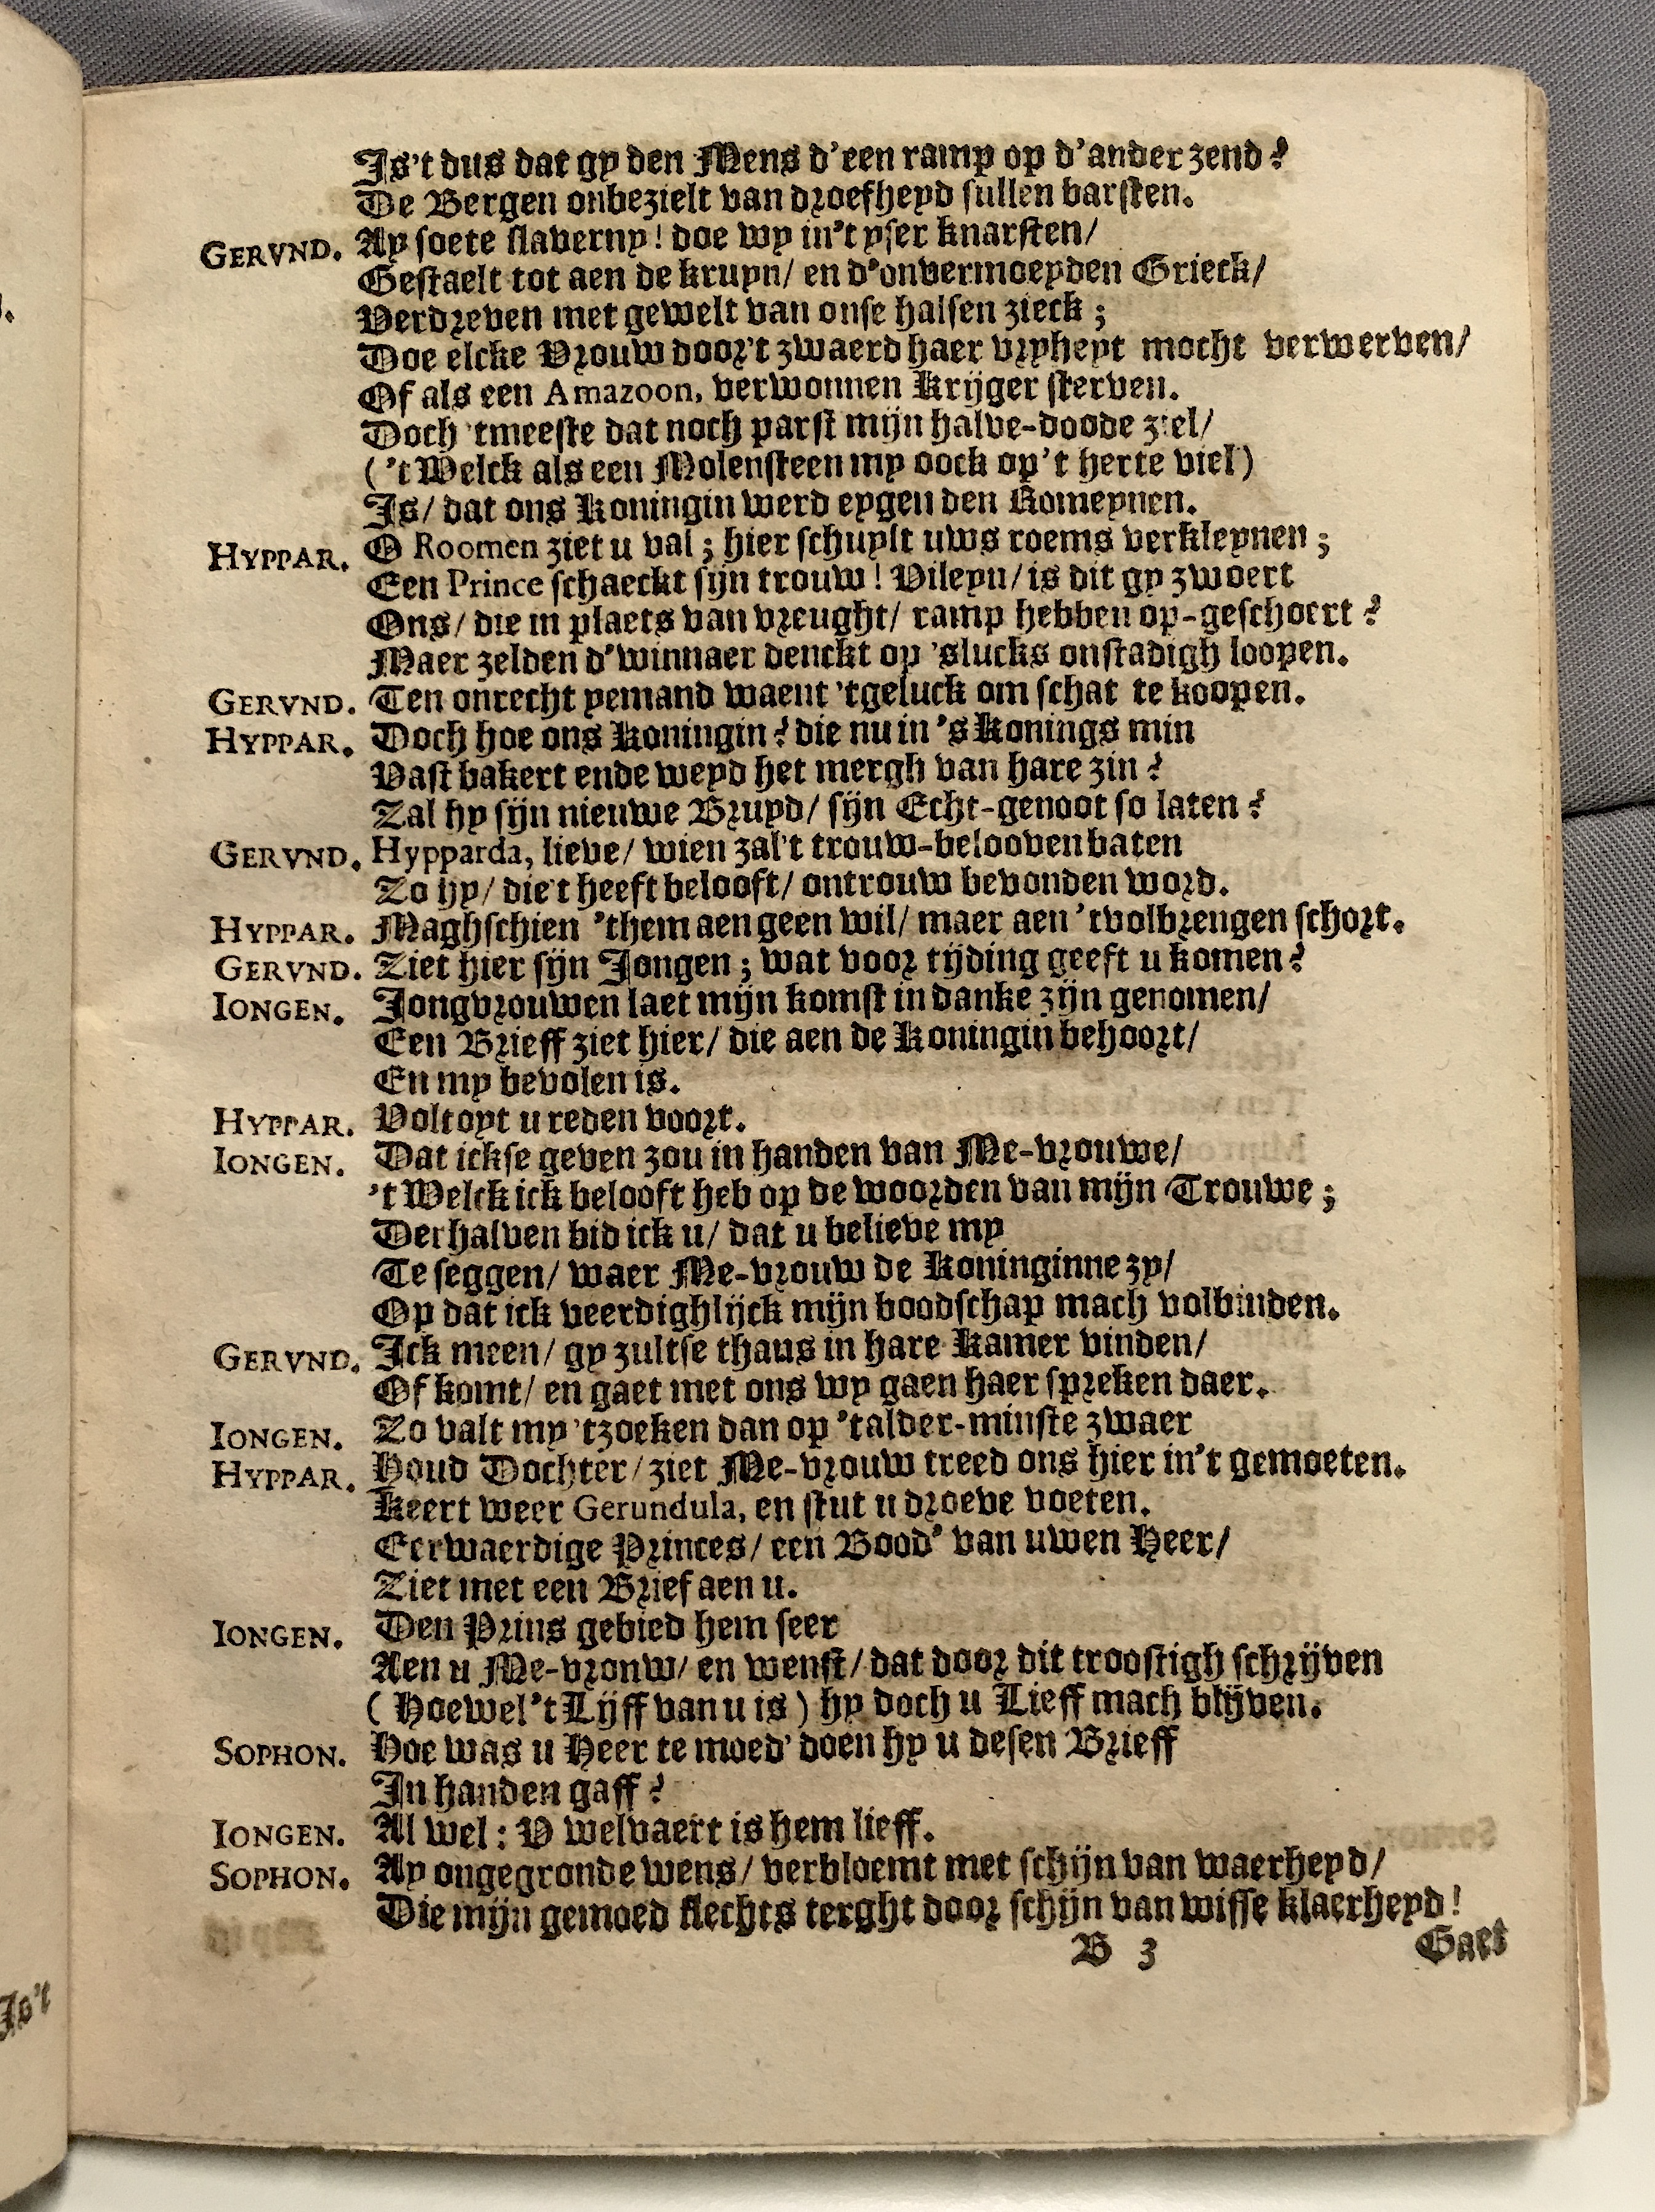 Is't dus dat gy den Mens d'een ramp op d'ander zend?
De Bergen onbezielt van droefheyd sullen barsten.
GERVND. Ay soete slaverny! doe wy in't yser knarsten/
Gestaelt tot aen de kruyn/ en d'onvermoeyden Grieck/
Verdreven met gewelt van onse halsen zieck;
Doe elcke Vrouw door't zwaerd haer vryheyt mocht verwerven/
Of als een Amazoon, verwonnen Krijger sterven.
Doch 'tmeeste dat noch parst mijn halve-doode ziel/
('t Welck als een Molensteen my oock op't herte viel)
Is/ dat ons Koningin werd eygen den Romeynen.
HYPPAR. O Roomen ziet u val; hier schuylt uws roems verkleynen;
Een Prince schaeckt sijn trouw! Vileyn/ is dit gy zwoert
Ons/ die in plaets van vreught/ ramp hebben op-geschoert?
Maer zelden d'winnaer denckt op 'slucks onstadigh loopen.
GERVND. Ten onrecht yemand waent 'tgeluck om schat te koopen.
HYPPAR. Doch hoe ons Koningin? die nu in 's Konings min
Vast bakert ende weyd het mergh van hare zin?
Zal hy sijn nieuwe Bruyd/ sijn Echt-genoot so laten?
GERVND. Hypparda, lieve/ wien zal't trouw-belooven baten
Zo hy/ die't heeft belooft/ ontrouw bevonden word.
HYPPAR. Maghschien 'them aen geen wil/ maer aen 'tvolbrengen schort.
GERVND. Ziet hier sijn Jongen; wat voor tijding geeft u komen?
IONGEN. Jongvrouwen laet mijn komst in danke zijn genomen/
Een Brieff ziet hier/ die aen de Koningin behoort/
En my bevolen is.
HYPPAR. Voltoyt u reden voort.
IONGEN. Dat ickse geven zou in handen van Me-vrouwe/
't Welck ick belooft heb op de woorden van mijn Trouwe;
Derhalven bid ick u/ dat u believe my
Te seggen/ waer Me-vrouw de Koninginne zy/
Op dat ick veerdighlijck mijn boodschap mach volbinden.
GERVND. Ick meen/ gy zultse thans in hare Kamer vinden/
Of komt/ en gaet met ons wy gaen haer spreken daer.
IONGEN. Zo valt my 'tzoeken dan op 'talder-minste zwaer
HYPPAR. Houd Dochter/ ziet Me-vrouw treed ons hier in't gemoeten.
Keert weer Gerundula, en stut u droeve voeten.
Eerwaerdige Princes/ een Bood' van uwen Heer/
Ziet met een Brief aen u.
IONGEN. Den Prins gebied hem seer
Aen u Me-vronw/ en wenst/ dat door dit troostigh schrijven
(Hoewel 't Lijff van u is) hy doch u Lieff mach blijven.
SOPHON. Hoe was u Heer te moed' doen hy u desen Brieff
In handen gaff?
IONGEN. Al wel: V welvaert is hem lieff.
SOPHON. Ay ongegronde wens/ verbloemt met schijn van waerheyd/
Die mijn gemoed slechts terght door schijn van wisse klaerheyd!
B 3 Gaet
Is't